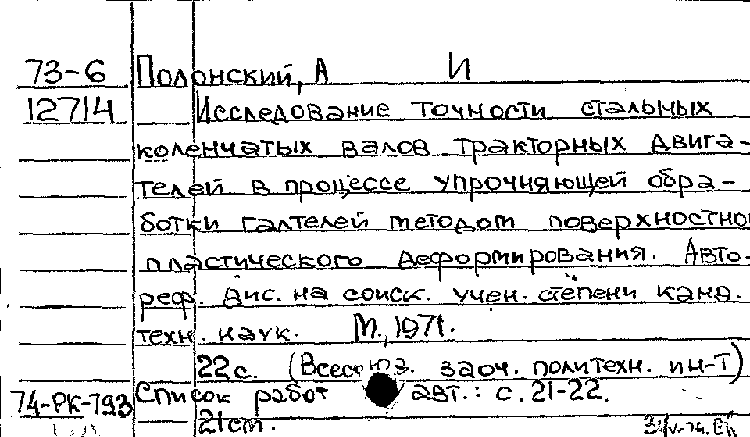 73-6 Полонский, А И
12714 Исследование точности стальных
коленчатых валов тракторных двига-
телей в процессе упрочняющей обра-
ботки галтелей методом поверхностно
пластического деформирования. Авто-
реф. дис. на соиск. учен. степени канд.
техн. наук. М., 1971.
22с. (Всесоюз. заоч. политехн. ин-т)
74-РК-793 Список работ авт.: с. 21-22.
21см.